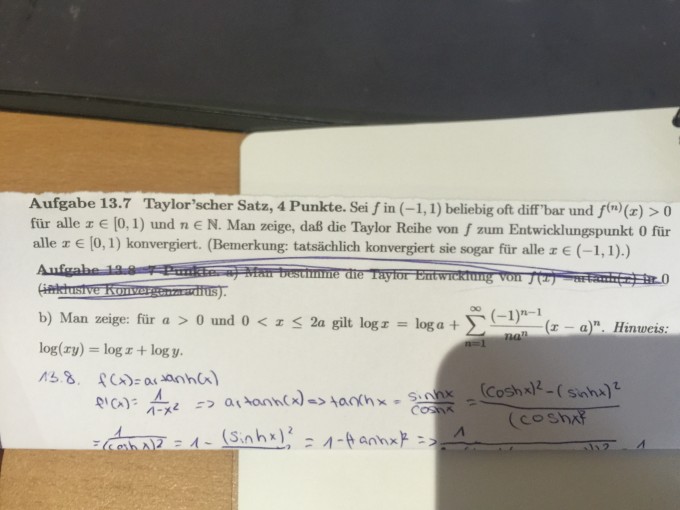 Aufgabe 13.7 Taylor'scher Satz, 4 Punkte. Sei f in (−1, 1) beliebig oft diff'bar und f⁽ⁿ⁾(x) > 0
für alle x ∈ [0, 1) und n ∈ ℕ. Man zeige, daß die Taylor Reihe von f zum Entwicklungspunkt 0 für
alle x ∈ [0, 1) konvergiert. (Bemerkung: tatsächlich konvergiert sie sogar für alle x ∈ (−1, 1).)
Aufgabe 13.8 7 Punkte. a) Man bestimme die Taylor Entwicklung von f(x) = artanh(x) in 0
(inklusive Konvergenzradius).
b) Man zeige: für a > 0 und 0 < x ≤ 2a gilt log x = log a + ∑_{n=1}^{∞} (−1)^{n−1}/(naⁿ) (x − a)ⁿ. Hinweis:
log(xy) = log x + log y.
13.8. f(x) = artanh(x)
f'(x) = 1/(1-x²) => artanh(x) => tanhx = sinhx/coshx = ((coshx)² - (sinhx)²)/(coshx)²
= 1/(coshx)² = 1 - (sinhx)² = 1 - (tanhx)² => 1